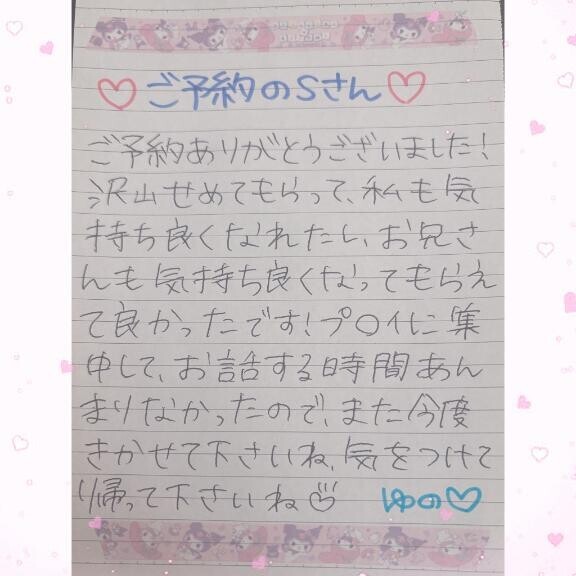 ♡ご予約のSさん♡
ご予約ありがとうございました!
沢山せめてもらって、私も気
持ち良くなれたし、お兄さ
んも気持ち良くなってもらえ
て良かったです!プ〇イに集
中して、お話する時間あん
まりなかったので、また今度
きかせて下さいね、気をつけて
帰って下さいね♡ ゆの♡